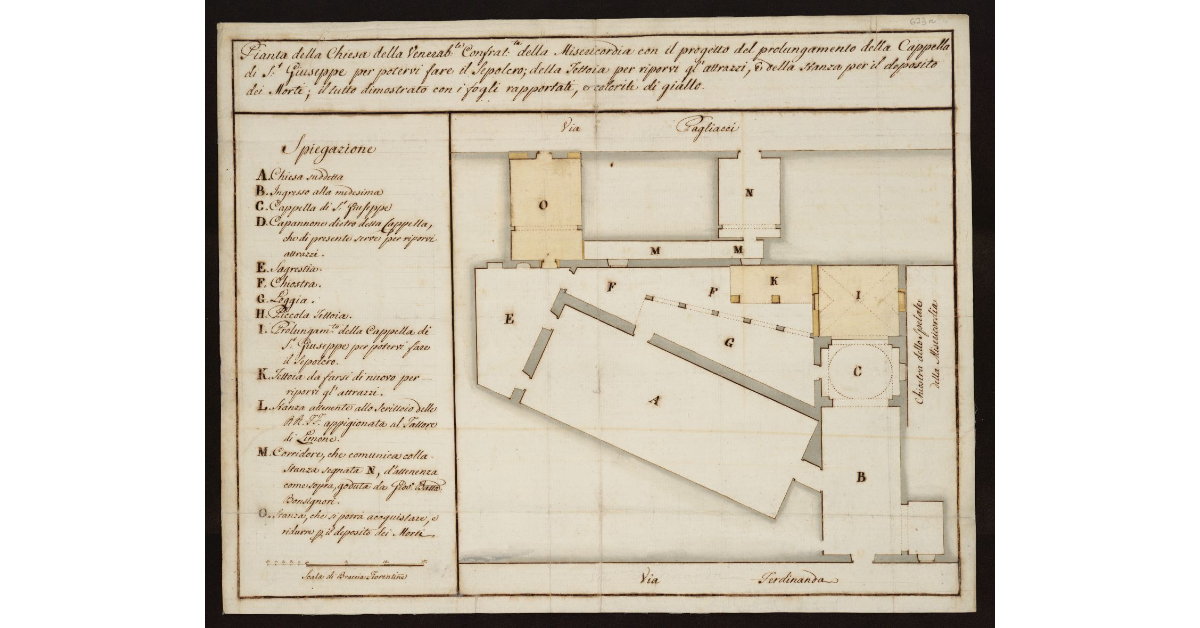 Pianta della Chiesa della Venerab.te Confrat.ta della Misericordia con il progetto del prolungamento della Cappella
di S. Giuseppe per potervi fare il Sepolcro; della Tettoia per riporvi gl'attrazzi, e della Stanza per il deposito
dei Morti; il tutto dimostrato con i fogli rapportati, e coloriti di giallo.
Via Pagliacci
Spiegazione
A. Chiesa suddetta
B. Ingresso alla medesima
C. Cappella di S. Giuseppe
D. Capannone dietro detta Cappella,
che di presente serve per riporvi
attrazzi.
E. Sagrestia.
F. Chiostra.
G. Loggia.
H. Piccola Tettoia.
I. Prolungam.to della Cappella di
S. Giuseppe per potervi fare
il Sepolcro.
K. Tettoia da farsi di nuovo per
riporvi gl'attrazzi.
L. Stanza attenente allo Scrittoio delle
RR. FF. appigionata al Fattore
di Limone.
M. Corridore, che comunica colla
Stanza segnata N, d'attenenza
come sopra, goduta da Giov. Batta
Bonsignori.
O. Stanza, che si potrà acquistare, e
ridurre p. il deposito dei Morti.
Scala di Braccia Fiorentine
O
N
M
M
F
F
K
I
E
G
C
A
B
Chiostra dello Spedale
della Misericordia
Via Ferdinanda